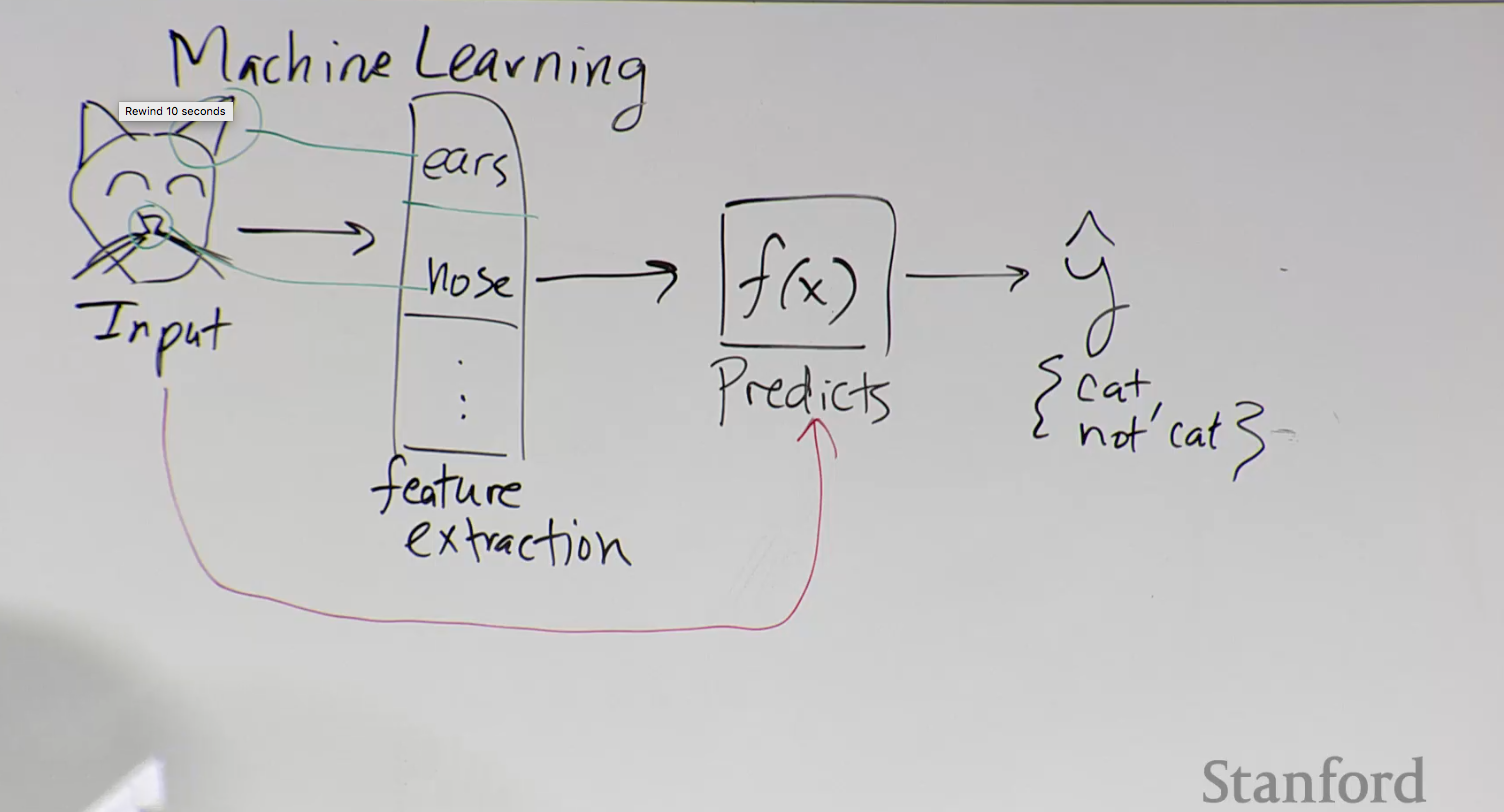 Machine Learning
Rewind 10 seconds
ears
nose
⋮
Input
feature
extraction
f(x)
Predicts
ŷ
{cat,
not cat}
Stanford